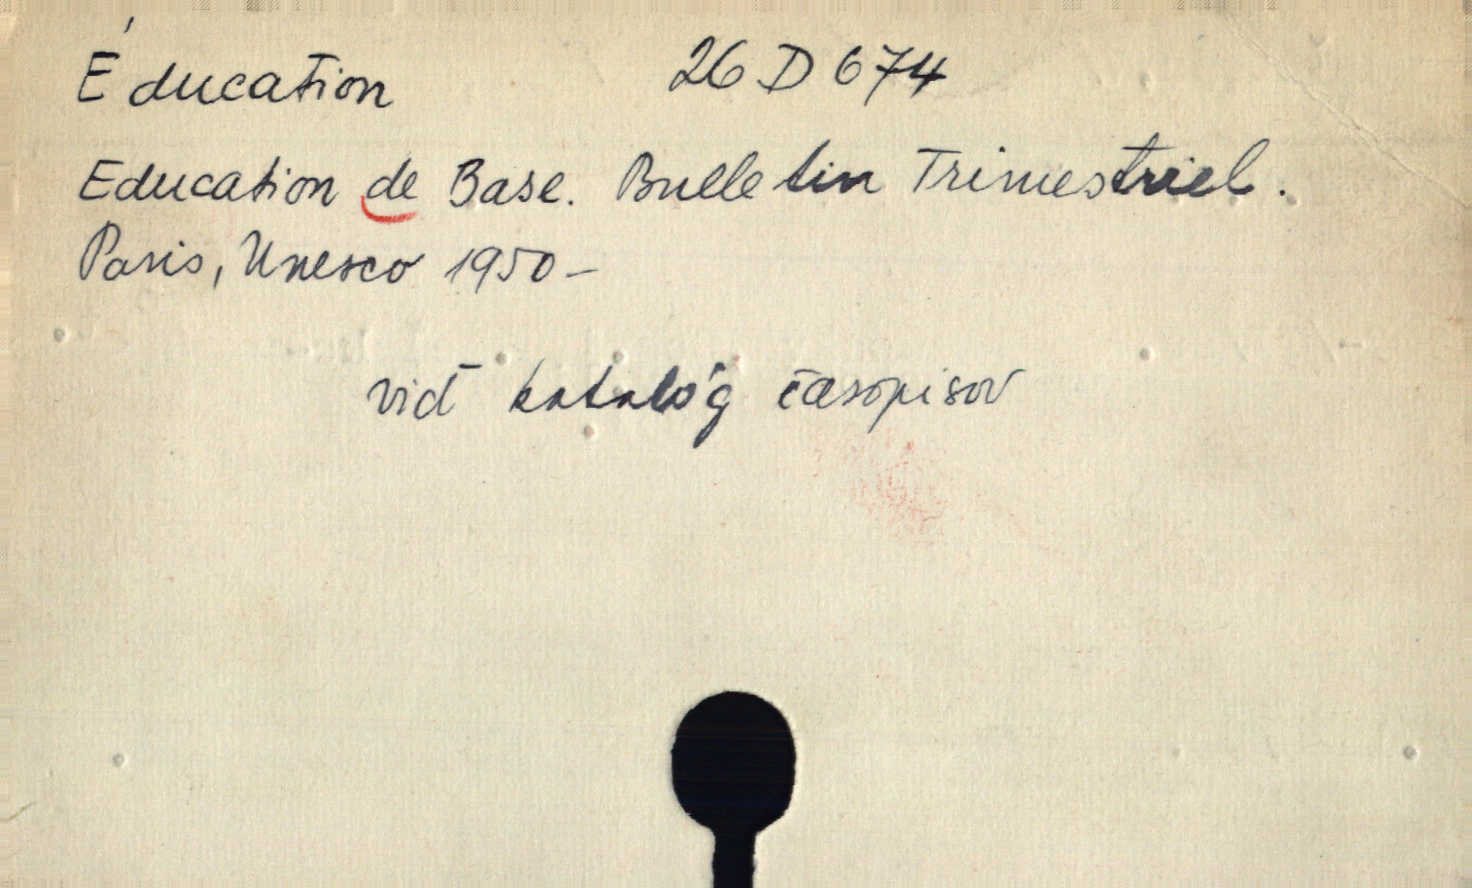 Éducation 26 D 674
Education de Base. Bulletin Trimestriel.
Paris, Unesco 1950-
viď katalóg časopisov